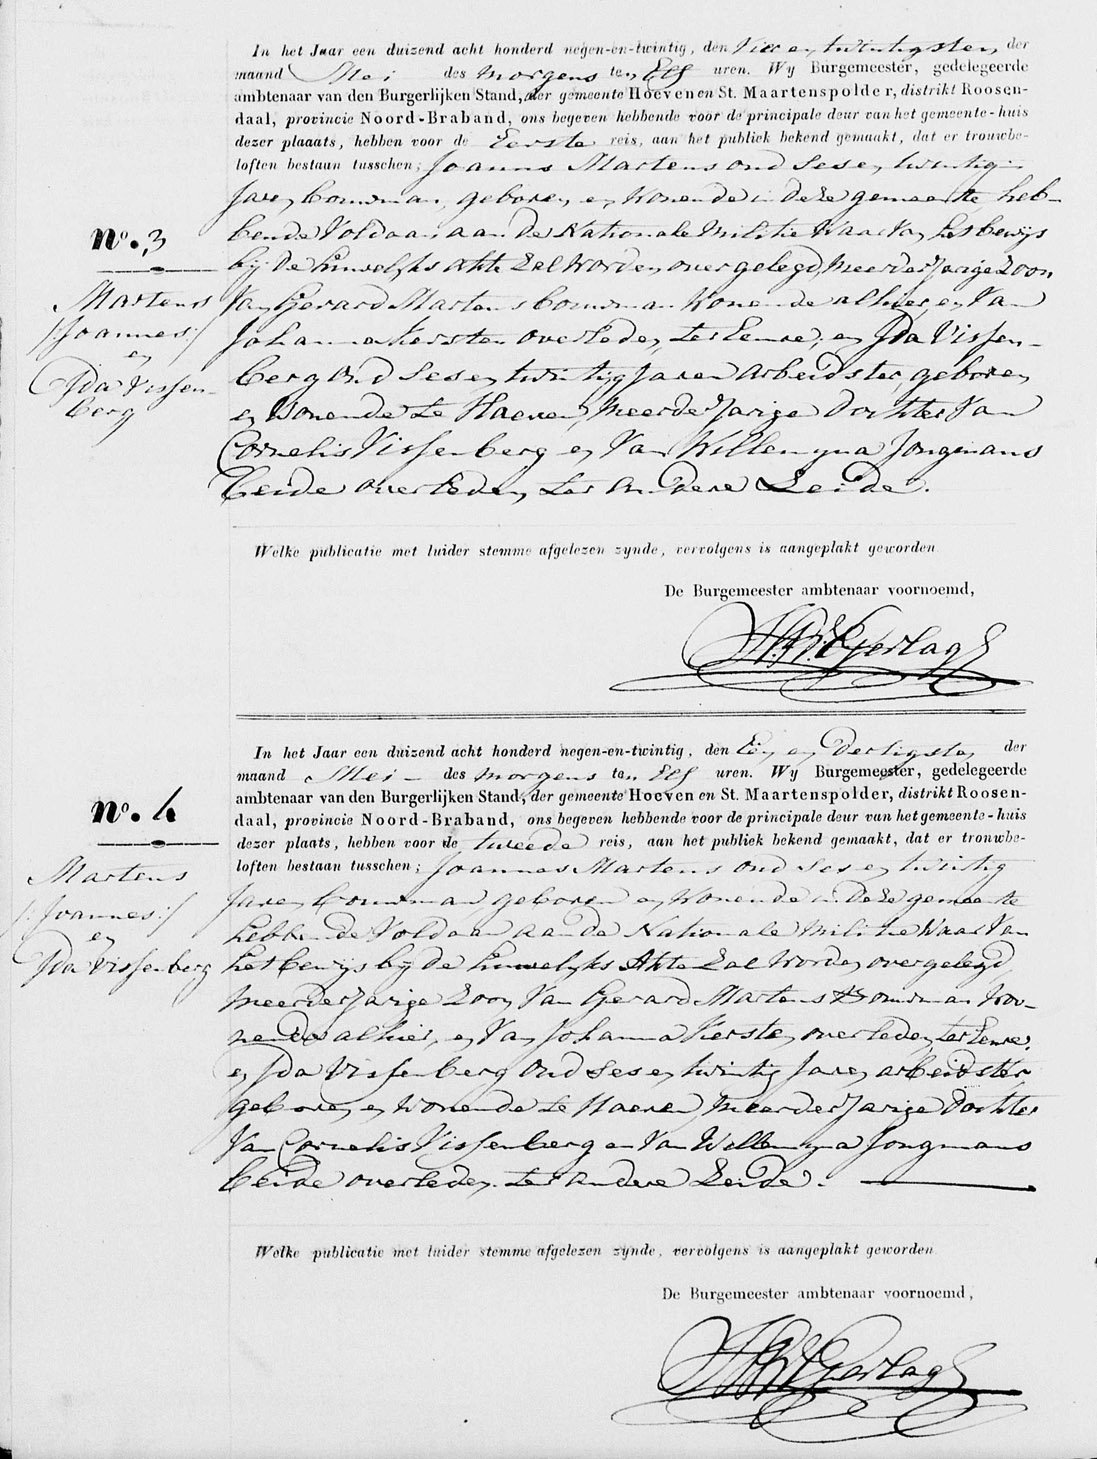 In het Jaar een duizend acht honderd negen-en-twintig, den Vier en twintigsten der
maand Mei des morgens ten Elf uren. Wy Burgemeester, gedelegeerde
ambtenaar van den Burgerlijken Stand, der gemeente Hoeven en St. Maartenspolder, distrikt Roosen-
daal, provincie Noord-Braband, ons begeven hebbende voor de principale deur van het gemeente-huis
dezer plaats, hebben voor de Eerste reis, aan het publiek bekend gemaakt, dat er trouwbe-
loften bestaan tusschen; Joannes Martens oud Ses en twintig
Jaren bouwman, geboren en Wonende in deze gemeente heb-
bende Voldaan aan de Nationale Militie Waar Van het bewijs
bij de huwelyks akte Zal Worden overgelegd, meerderjarige Zoon
No. 3
Martens
/:Joannes:/
en
Ida Vissen-
berg
Van Gerard Martens bouwman Wonende alhier, en Van
Johanna Kersten overleden, ter Eenre; en Ida Vissen-
berg oud Ses en twintig Jaren arbeidster, geboren
en Wonende te Hoeven, meerderjarige Dochter Van
Cornelis Vissenberg en Van Willemyna Jongmans
beide overleden, ter andere Zeide.
Welke publicatie met luider stemme afgelezen zynde, vervolgens is aangeplakt geworden
De Burgemeester ambtenaar voornoemd,
In het Jaar een duizend acht honderd negen-en-twintig, den Een en Dertigsten der
maand Mei des morgens ten Elf uren. Wy Burgemeester, gedelegeerde
ambtenaar van den Burgerlijken Stand, der gemeente Hoeven en St. Maartenspolder, distrikt Roosen-
daal, provincie Noord-Braband, ons begeven hebbende voor de principale deur van het gemeente-huis
dezer plaats, hebben voor de tweede reis, aan het publiek bekend gemaakt, dat er trouwbe-
loften bestaan tusschen; Joannes Martens oud Ses en twintig
No. 4
Martens
/:Joannes:/
en
Ida Vissenberg
Jaren bouwman, geboren en Wonende in deze gemeente
hebbende Voldaan aan de Nationale Militie Waar Van
het bewijs bij de huwelyks Akte Zal Worden overgelegd,
meerderjarige Zoon Van Gerard Martens Bouwman Wo-
nende alhier, en Van Johanna Kersten overleden, ter Eenre;
en Ida Vissenberg oud Ses en twintig Jaren arbeidster
geboren en Wonende te Hoeven, meerderjarige Dochter
Van Cornelis Vissenberg en Van Willemyna Jongmans
beide overleden. ter andere Zeide.
Welke publicatie met luider stemme afgelezen zynde, vervolgens is aangeplakt geworden
De Burgemeester ambtenaar voornoemd,